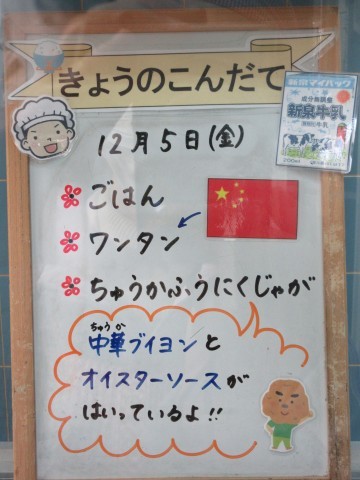 きょうのこんだて
新泉マイパック
成分無調整
新泉牛乳
200ml
12月5日(金)
ごはん
ワンタン
ちゅうかふうにくじゃが
ちゅうか
中華ブイヨンと
オイスターソースが
はいっているよ!!